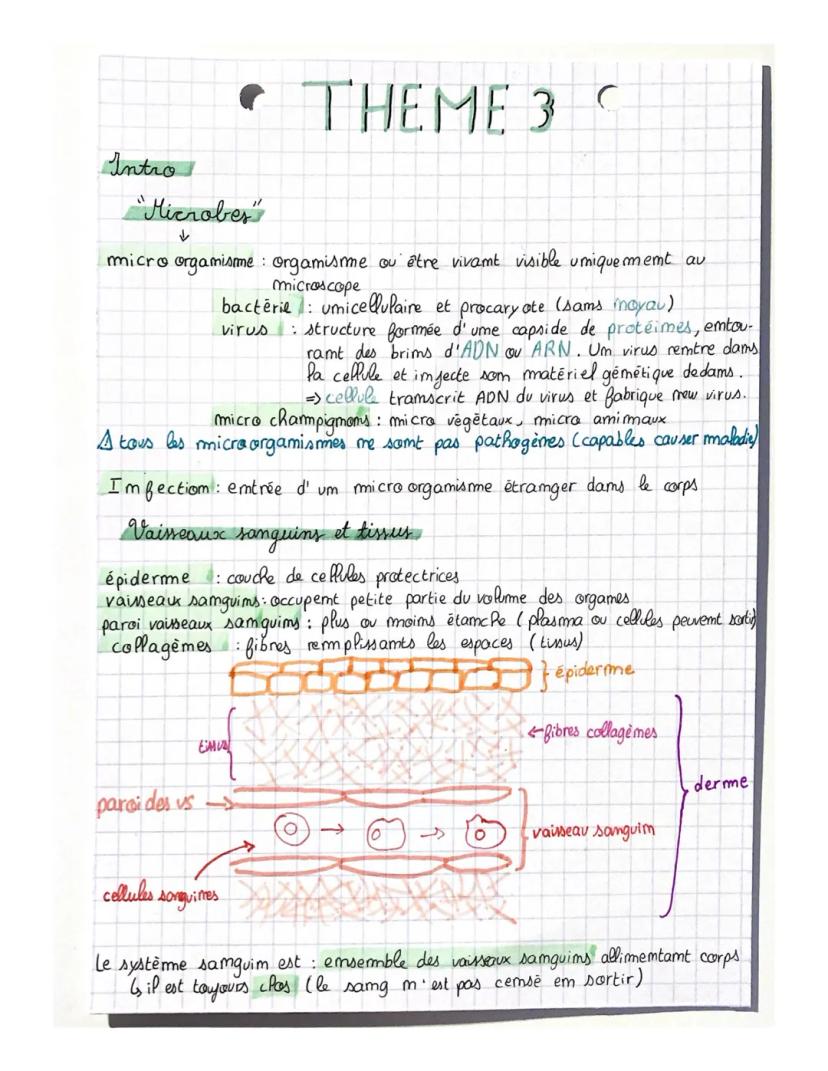 THEME 3
Intro
"Microbes"
↓
micro organisme : organisme ou être vivant visible uniquement au
microscope
bactérie : unicellulaire et procaryote (sans noyau)
virus : structure formée d'une capside de protéines, entou-
rant des brins d'ADN ou ARN. Un virus rentre dans
la cellule et injecte son matériel génétique dedans.
=> cellule transcrit ADN du virus et fabrique new virus.
micro champignons : micro végétaux, micro animaux
⚠ tous les microorganismes ne sont pas pathogènes (capables causer maladie)
Infection : entrée d'un micro organisme étranger dans le corps
Vaisseaux sanguins et tissus
épiderme : couche de cellules protectrices
vaisseaux sanguins : occupent petite partie du volume des organes
paroi vaisseaux sanguins : plus ou moins étanche (plasma ou cellules peuvent sortir)
collagènes : fibres remplissants les espaces (tissus)
} épiderme
tissus {
← fibres collagènes
} derme
paroi des vs →
} vaisseau sanguin
cellules sanguines
Le système sanguin est : ensemble des vaisseaux sanguins allimentant corps
↳ il est toujours clos (le sang n'est pas censé en sortir)